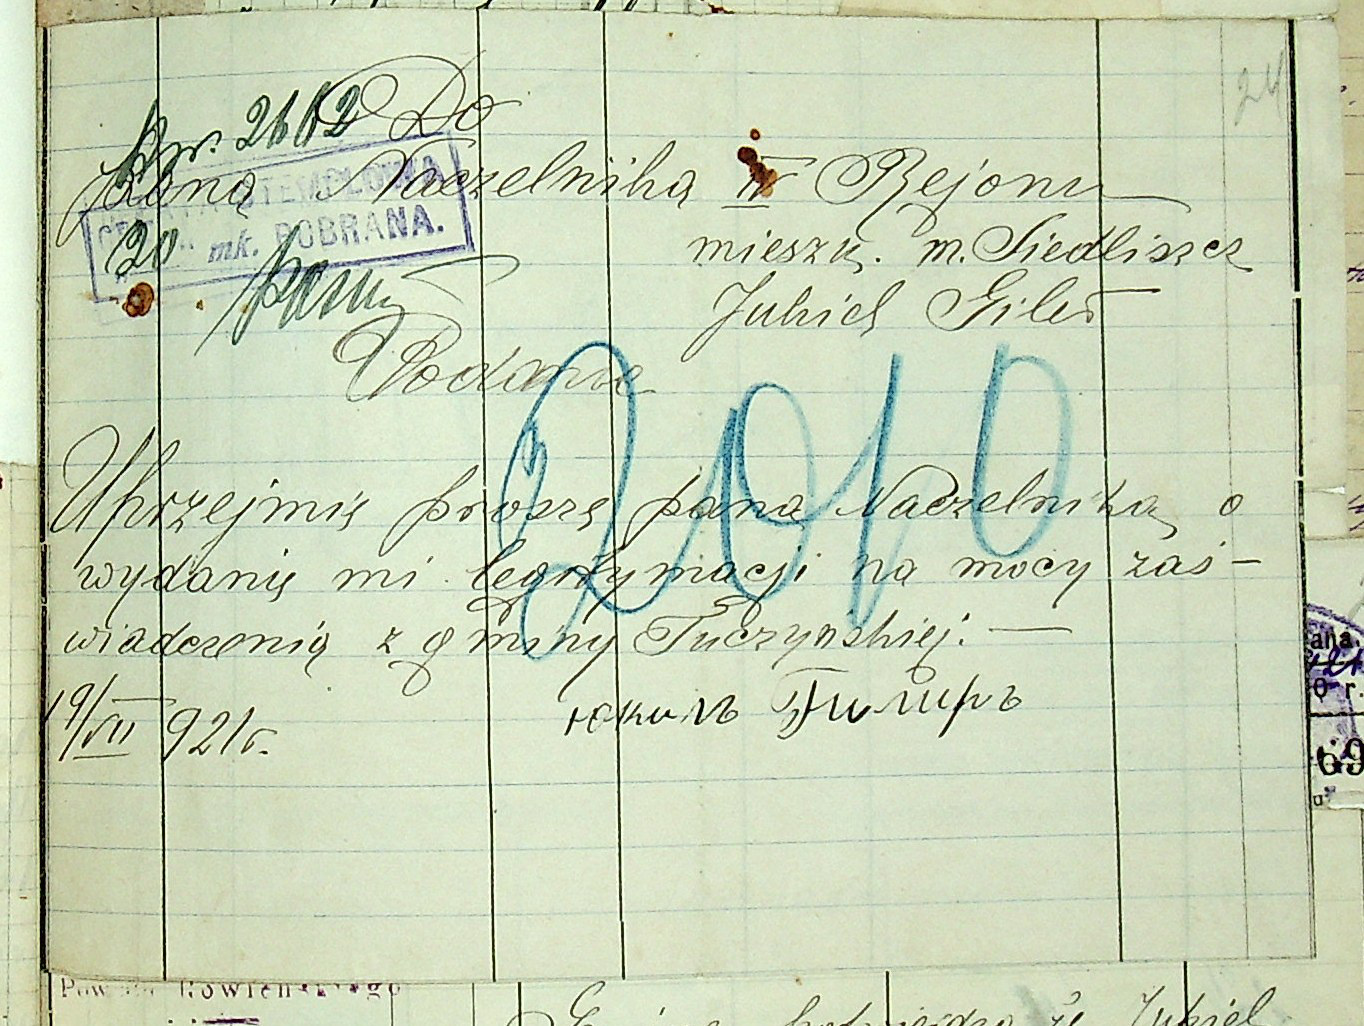 24
Do
Pana Naczelnika II Rejonu
OPŁATA STEMPLOWA
20 mk. POBRANA.
mieszk. m. Siedliszcz
Juhiel Giler
Podanie
2010
Uprzejmię proszę pana Naczelnika o
wydanię mi legitymacji na mocy zaś-
wiadczenią z gminy Tuczynskiej. —
19/VII 921 r.
Юкил Гилиръ
ana
0 r.
69
Pow Rowieńskiego